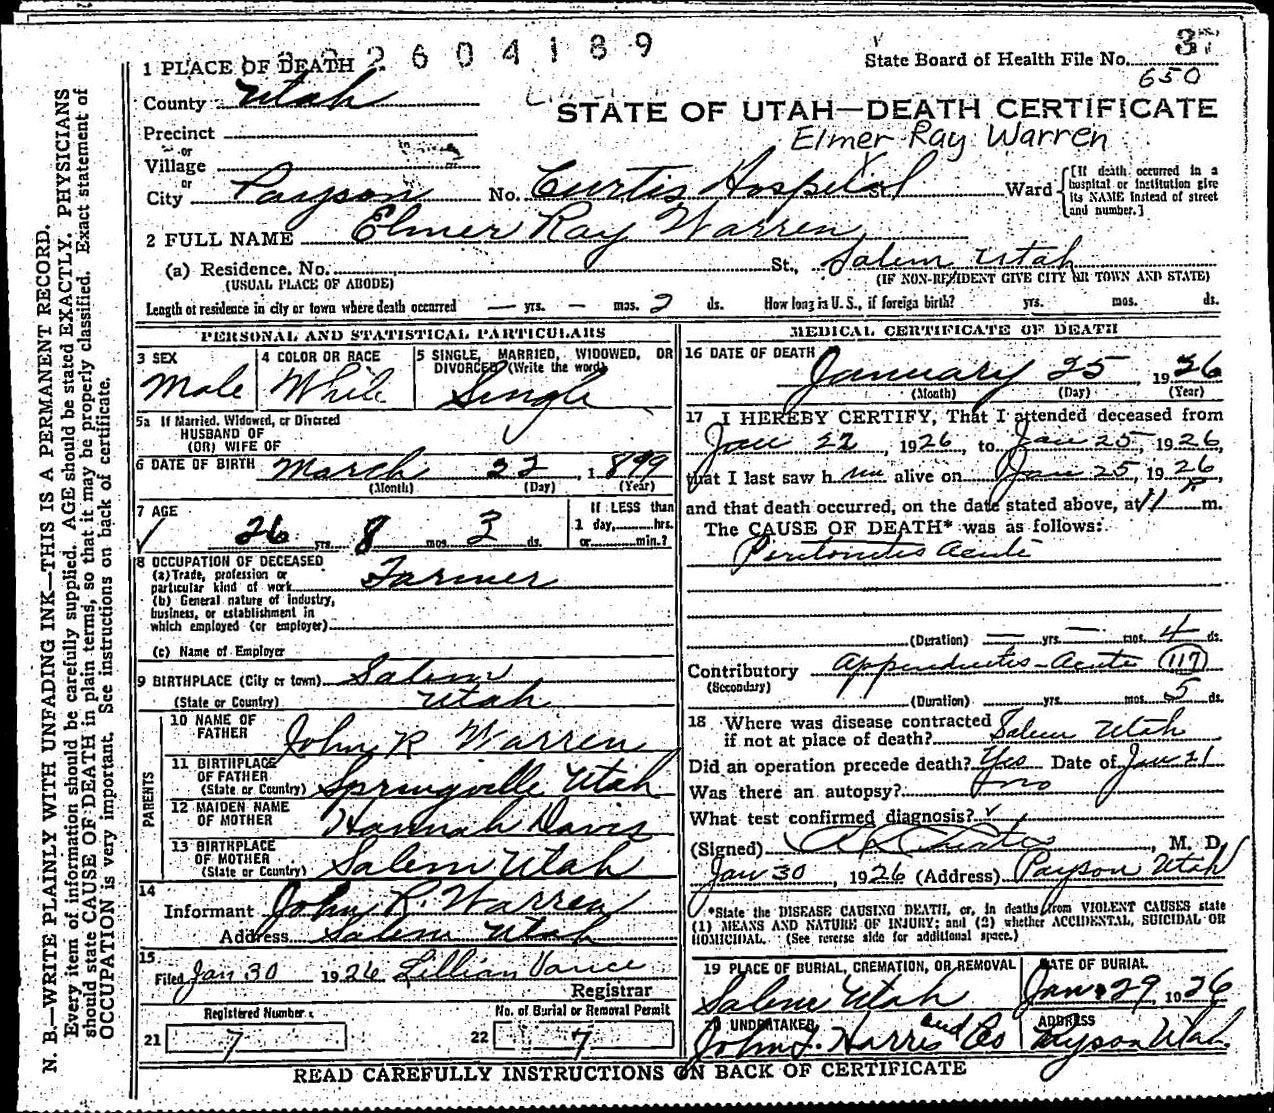 2604189
37
1 PLACE OF DEATH
State Board of Health File No.
650
County Utah
STATE OF UTAH—DEATH CERTIFICATE
Precinct
Elmer Ray Warren
or
Village
or
City Payson No. Curtis Hospital St. Ward
[If death occurred in a
hospital or institution give
its NAME instead of street
and number.]
2 FULL NAME Elmer Ray Warren
(a) Residence. No. St., Salem Utah
(USUAL PLACE OF ABODE) (IF NON-RESIDENT GIVE CITY OR TOWN AND STATE)
Length of residence in city or town where death occurred — yrs. — mos. 2 ds. How long in U.S., if foreign birth? yrs. mos. ds.
PERSONAL AND STATISTICAL PARTICULARS
3 SEX
Male
4 COLOR OR RACE
White
5 SINGLE, MARRIED, WIDOWED, OR
DIVORCED (Write the word)
Single
5a If Married, Widowed, or Divorced
HUSBAND OF
(OR) WIFE OF
6 DATE OF BIRTH March 22, 1899
(Month) (Day) (Year)
7 AGE
26 yrs. 8 mos. 3 ds.
If LESS than
1 day, hrs.
or min.?
8 OCCUPATION OF DECEASED
(a) Trade, profession or
particular kind of work Farmer
(b) General nature of industry,
business, or establishment in
which employed (or employer)
(c) Name of Employer
9 BIRTHPLACE (City or town) Salem
(State or Country) Utah
PARENTS
10 NAME OF
FATHER John R Warren
11 BIRTHPLACE
OF FATHER
(State or Country) Springville Utah
12 MAIDEN NAME
OF MOTHER Hannah Davis
13 BIRTHPLACE
OF MOTHER
(State or Country) Salem Utah
14
Informant John R. Warren
Address Salem Utah
15
Filed Jan 30 1926 Lillian Vance
Registrar
Registered Number
21 7
No. of Burial or Removal Permit
22 7
MEDICAL CERTIFICATE OF DEATH
16 DATE OF DEATH
January 25, 1926
(Month) (Day) (Year)
17 I HEREBY CERTIFY, That I attended deceased from
Jan 22, 1926, to Jan 25, 1926,
that I last saw h im alive on Jan 25, 1926,
and that death occurred, on the date stated above, at 11 P m.
The CAUSE OF DEATH* was as follows:
Peritonitis Acute
(Duration) — yrs. — mos. 4 ds.
Contributory Appendicitis - Acute 117
(Secondary)
(Duration) yrs. mos. 5 ds.
18 Where was disease contracted
if not at place of death? Salem Utah
Did an operation precede death? Yes Date of Jan 21
Was there an autopsy? no
What test confirmed diagnosis?
(Signed) Curtis, M. D.
Jan 30, 1926 (Address) Payson Utah
*State the DISEASE CAUSING DEATH, or, in deaths from VIOLENT CAUSES state
(1) MEANS AND NATURE OF INJURY; and (2) whether ACCIDENTAL, SUICIDAL OR
HOMICIDAL. (See reverse side for additional space.)
19 PLACE OF BURIAL, CREMATION, OR REMOVAL
Salem Utah
DATE OF BURIAL
Jan 29, 1926
UNDERTAKER
John J. Harris and Co
ADDRESS
Payson Utah
READ CAREFULLY INSTRUCTIONS ON BACK OF CERTIFICATE
N. B.—WRITE PLAINLY WITH UNFADING INK—THIS IS A PERMANENT RECORD.
Every item of information should be carefully supplied. AGE should be stated EXACTLY. PHYSICIANS
should state CAUSE OF DEATH in plain terms, so that it may be properly classified. Exact statement of
OCCUPATION is very important. See instructions on back of certificate.